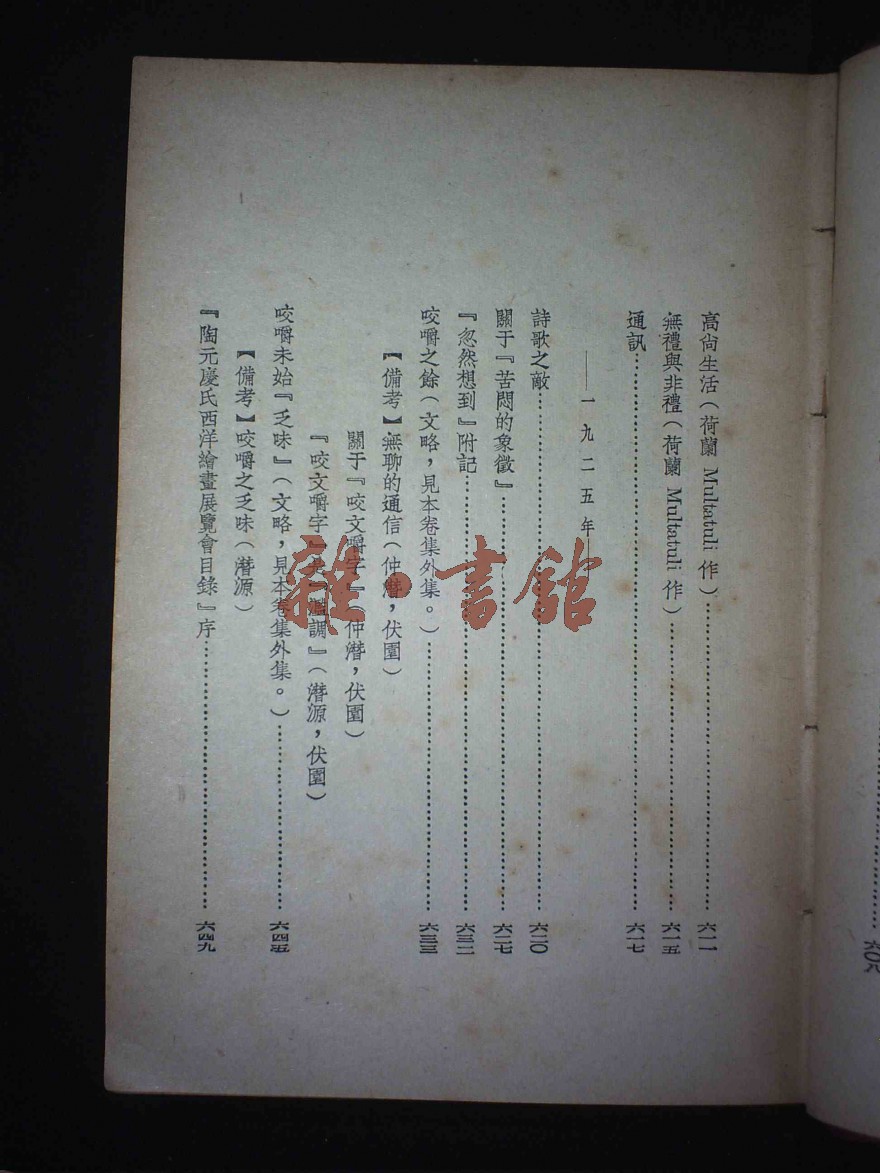 高尚生活（荷蘭 Multatuli 作）……六一一
無禮與非禮（荷蘭 Multatuli 作）……六一五
通訊……六一七
——一九二五年——
詩歌之敵……六二〇
關于『苦悶的象徵』……六二七
『忽然想到』附記……六三二
咬嚼之餘（文略，見本卷集外集。）……六三三
【備考】無聊的通信（仲潛，伏園）
關于『咬文嚼字』（仲潛，伏園）
『咬文嚼字』是『濫調』（潛源，伏園）
咬嚼未始『乏味』（文略，見本卷集外集。）……六四五
【備考】咬嚼之乏味（潛源）
『陶元慶氏西洋繪畫展覽會目錄』序……六四九
雜·書館
六〇九